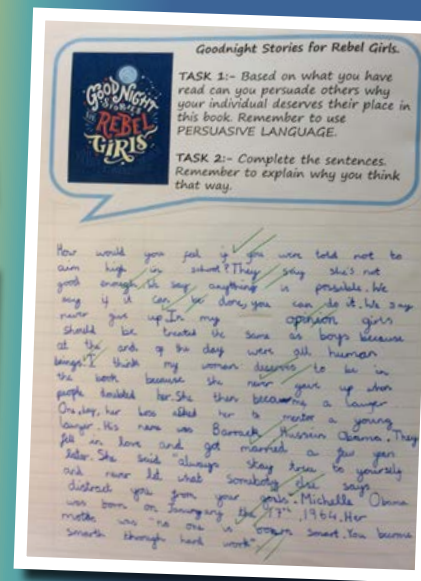 Goodnight Stories for Rebel Girls.
GOODNIGHT
STORIES
FOR
REBEL
GIRLS
TASK 1:- Based on what you have
read can you persuade others why
your individual deserves their place in
this book. Remember to use
PERSUASIVE LANGUAGE.
TASK 2:- Complete the sentences.
Remember to explain why you think
that way.
How would you feel if you were told not to
aim high in school? They say she's not
good enough. We say anything is possible. We
say if it can be done, you can do it. We say
never give up. In my opinion girls
should be treated the same as boys because
at the end of the day were all human
beings. I think my woman deserves to be in
the book because she never gave up when
people doubted her. She then became a lawyer
One day, her boss asked her to mentor a young
lawyer. His name was Barrack Hussein Obama. They
fell in love and got married a few years
later. She said "always stay true to yourself
and never let what somebody else says
distract you from your goals". Michelle Obama
was born on the 17th, 1964. Her
motto was "no one is born smart. You become
smart through hard work"